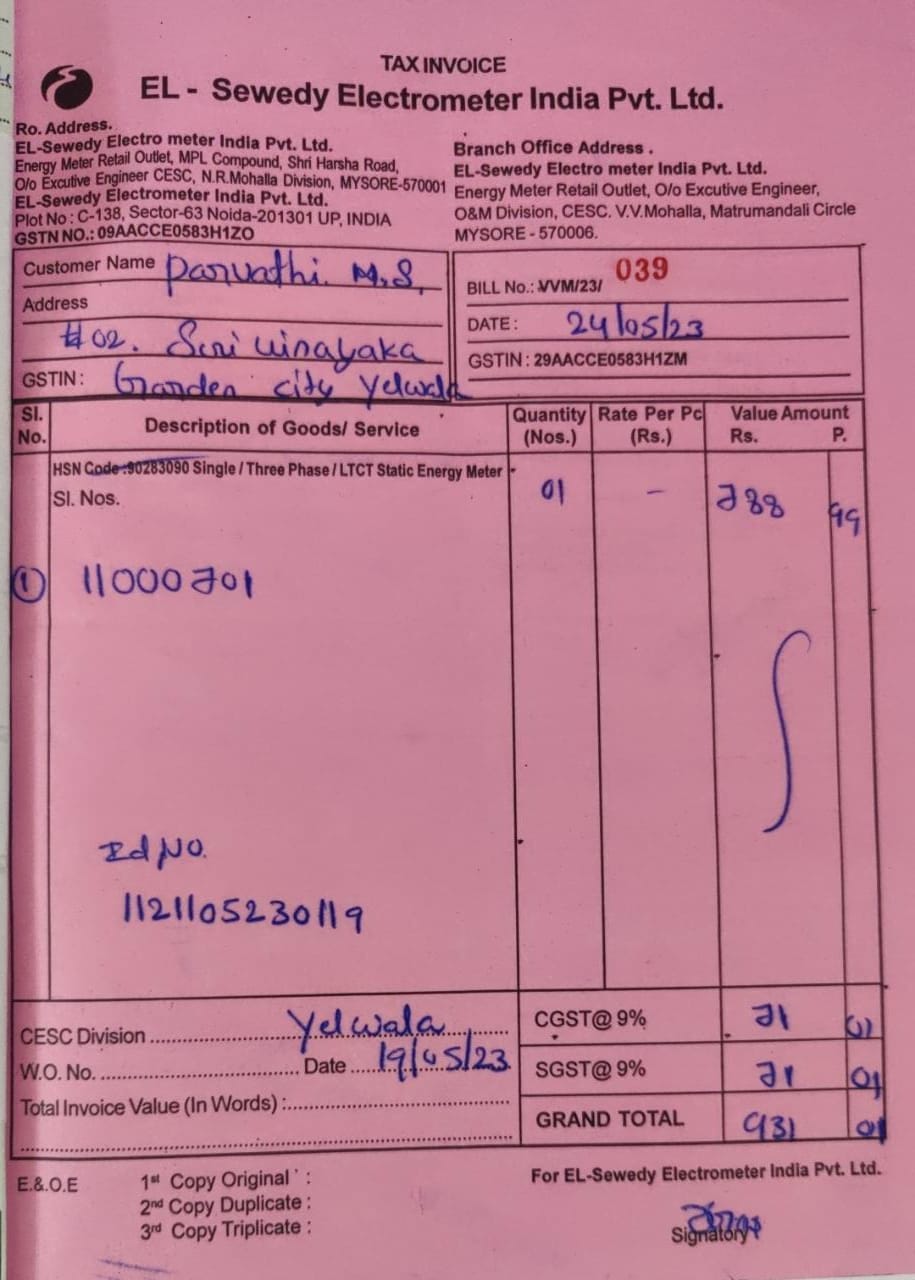 TAX INVOICE
EL - Sewedy Electrometer India Pvt. Ltd.
Ro. Address.
EL-Sewedy Electro meter India Pvt. Ltd.
Energy Meter Retail Outlet, MPL Compound, Shri Harsha Road,
O/o Excutive Engineer CESC, N.R.Mohalla Division, MYSORE-570001
EL-Sewedy Electrometer India Pvt. Ltd.
Plot No : C-138, Sector-63 Noida-201301 UP, INDIA
GSTN NO.: 09AACCE0583H1ZO
Branch Office Address .
EL-Sewedy Electro meter India Pvt. Ltd.
Energy Meter Retail Outlet, O/o Excutive Engineer,
O&M Division, CESC. V.V.Mohalla, Matrumandali Circle
MYSORE - 570006.
Customer Name Parvathi. M.S,
Address
#02. Sri Vinayaka
GSTIN : Garden city Yelwala
BILL No.: VVM/23/ 039
DATE : 24/05/23
GSTIN : 29AACCE0583H1ZM
Sl. No. Description of Goods/ Service Quantity (Nos.) Rate Per Pc (Rs.) Value Amount Rs. P.
HSN Code :90283090 Single / Three Phase / LTCT Static Energy Meter
Sl. Nos. 01 - 788 99
① 11000701
Id No.
1121105230119
CESC Division Yelwala
W.O. No. Date 19/05/23
Total Invoice Value (In Words) :
CGST@ 9% 71 01
SGST@ 9% 71 01
GRAND TOTAL 931 01
E.&.O.E
1st Copy Original :
2nd Copy Duplicate :
3rd Copy Triplicate :
For EL-Sewedy Electrometer India Pvt. Ltd.
Signatory